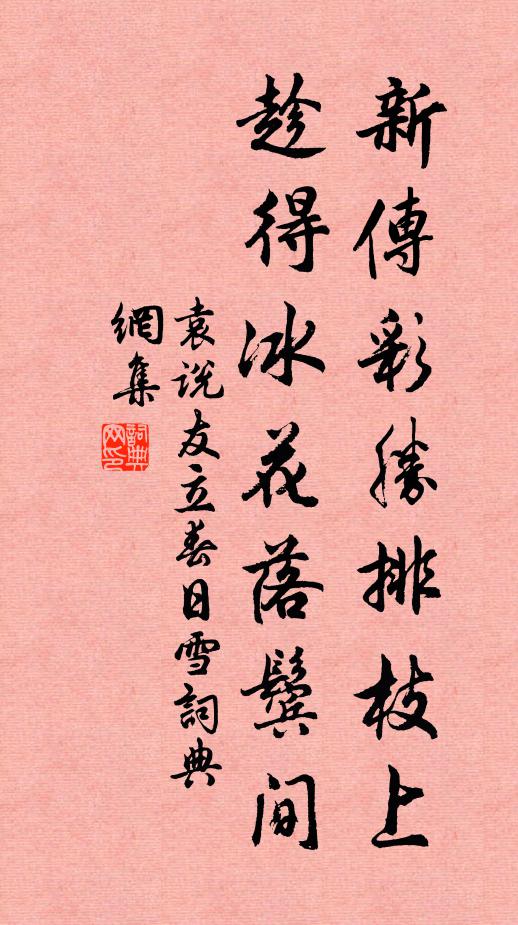 新傳彩勝排枝上
趁得冰花落鬢間
袁説友立春日雪詞典
網集
詞典
網印